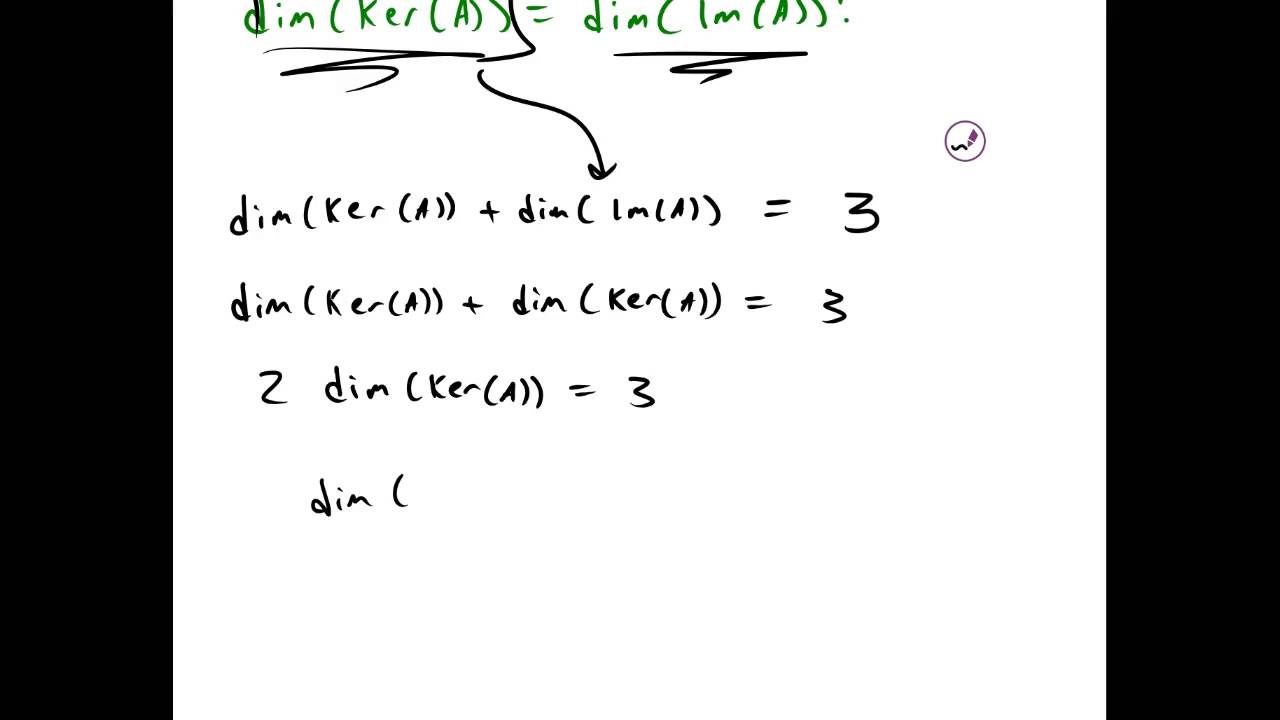 dim(Ker(A)) = dim(Im(A))?
dim(Ker(A)) + dim(Im(A)) = 3
dim(Ker(A)) + dim(Ker(A)) = 3
2 dim(Ker(A)) = 3
dim(